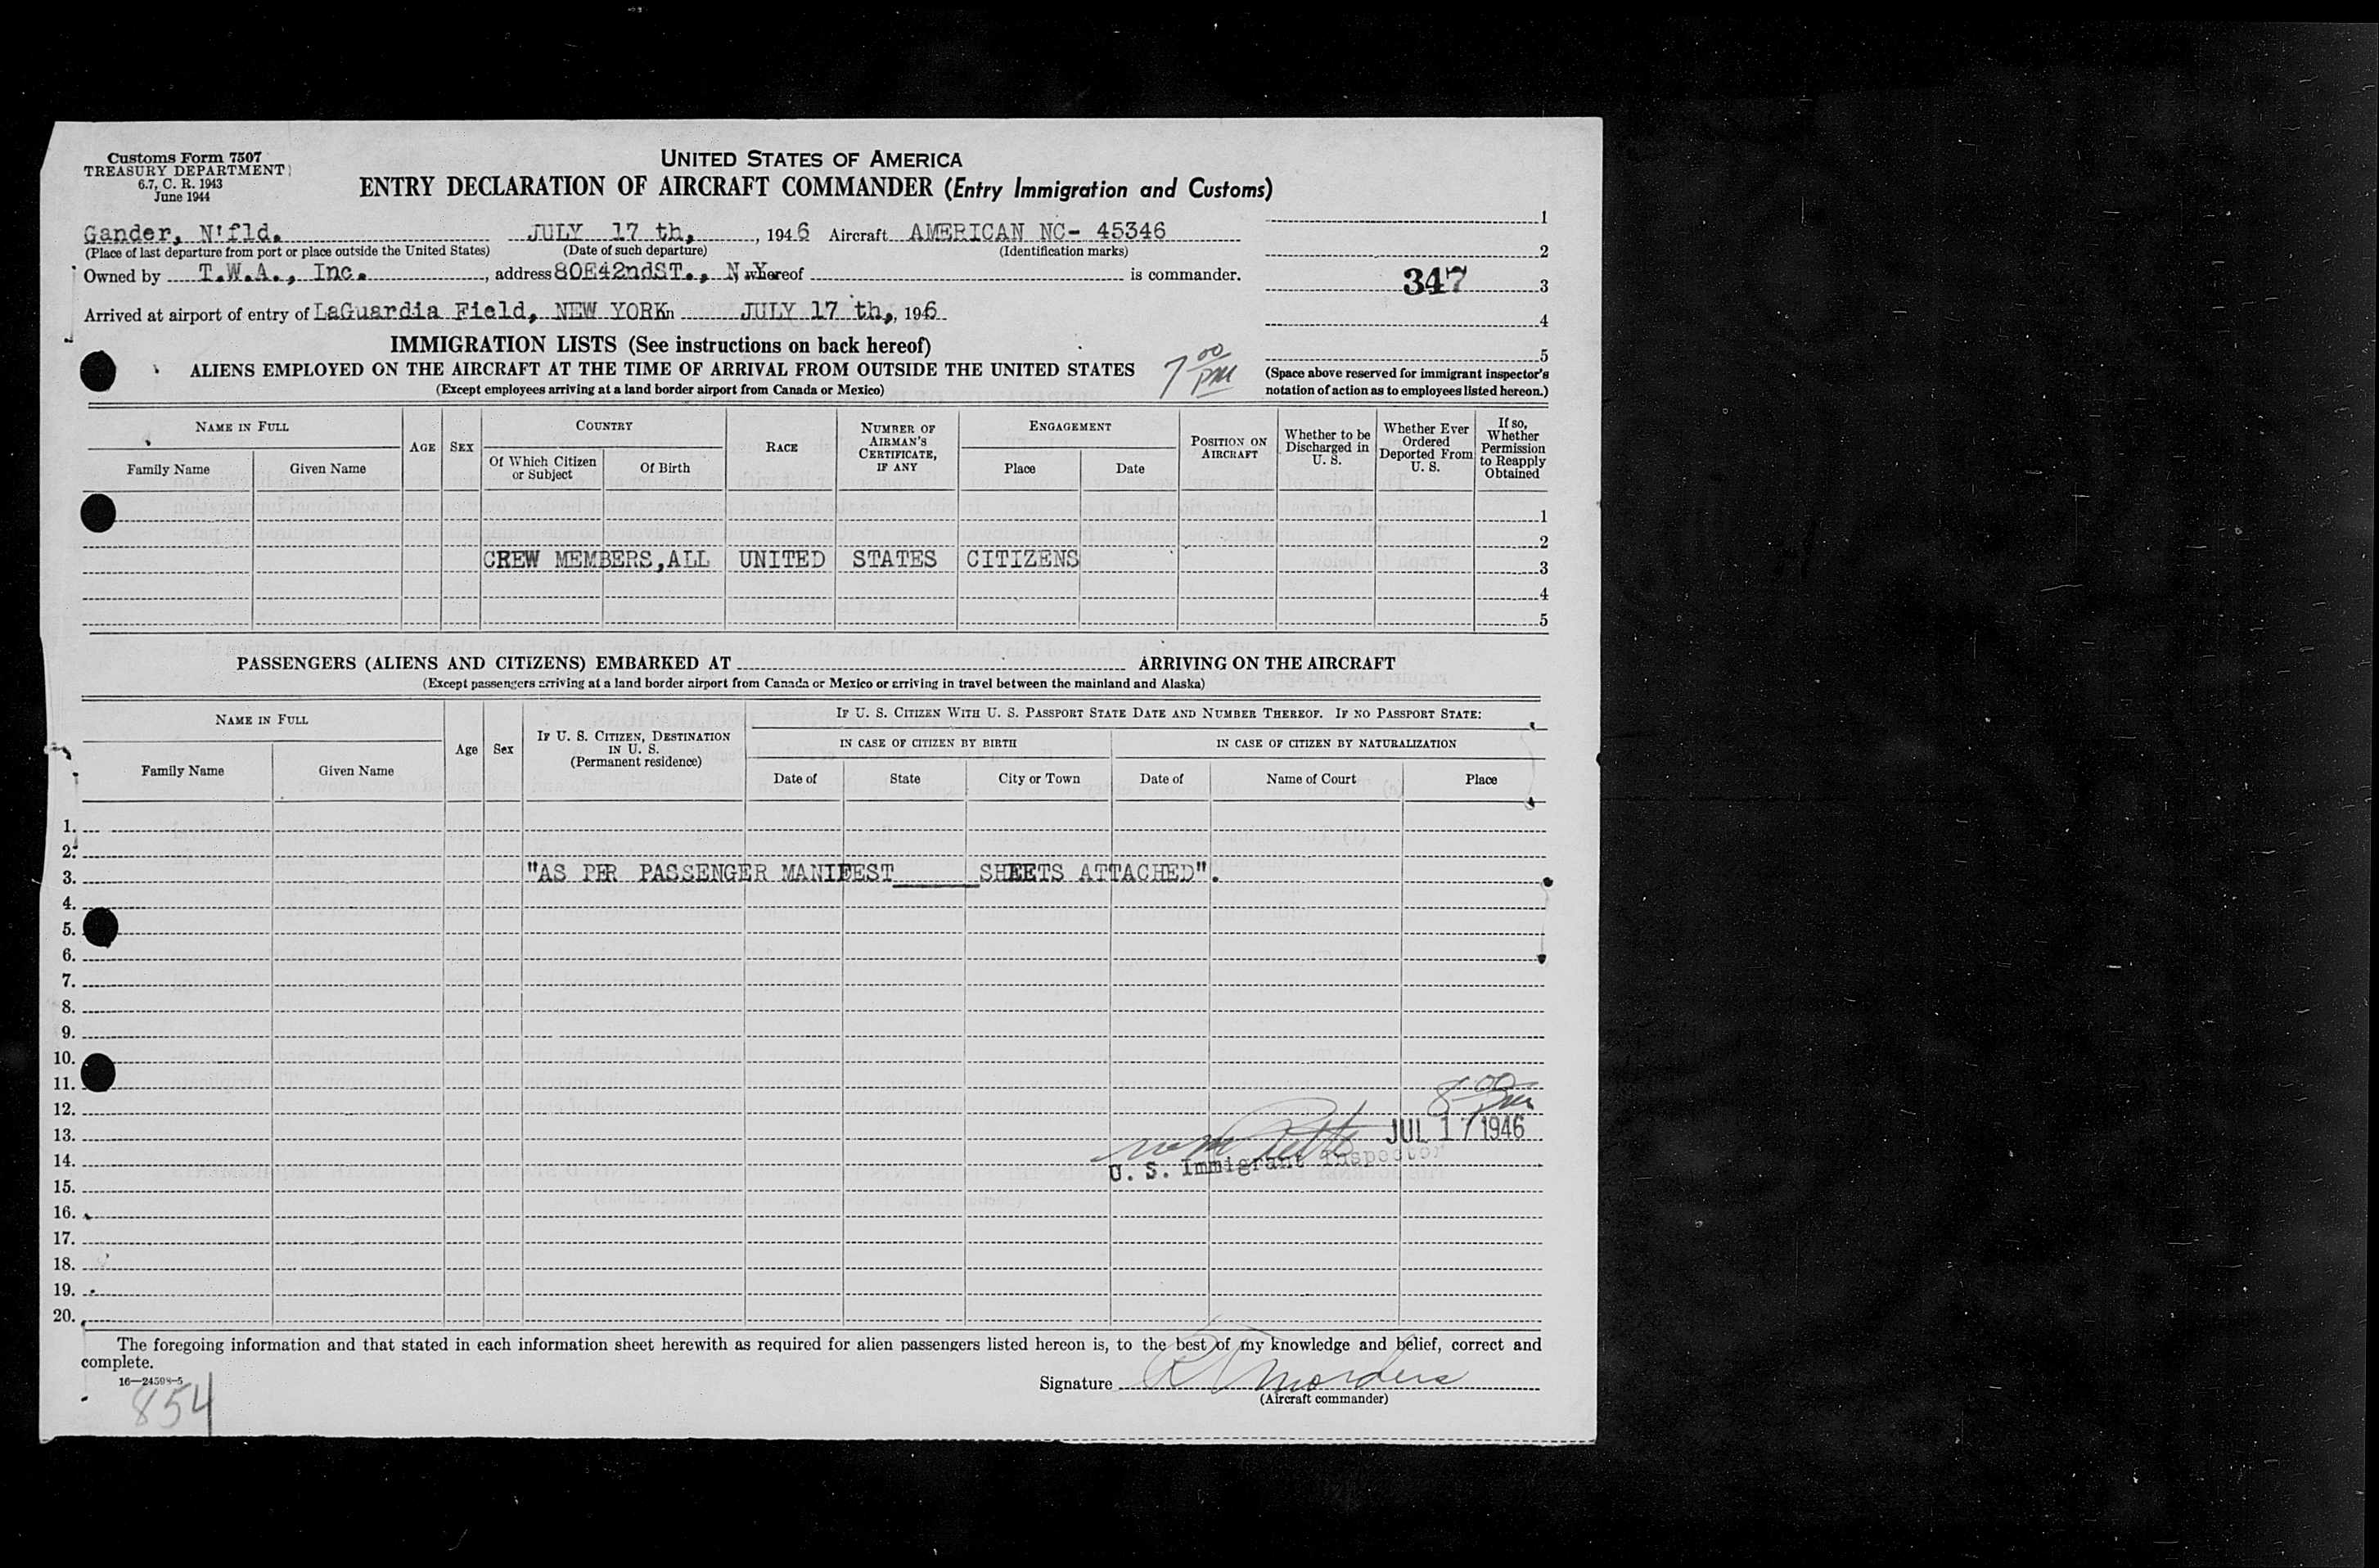 Customs Form 7507
TREASURY DEPARTMENT
6.7, C. R. 1943
June 1944
UNITED STATES OF AMERICA
ENTRY DECLARATION OF AIRCRAFT COMMANDER (Entry Immigration and Customs)
Gander, N'fld. JULY 17 th, , 1946 Aircraft AMERICAN NC- 45346
(Place of last departure from port or place outside the United States) (Date of such departure) (Identification marks)
Owned by T.W.A., Inc. , address 80E42ndST., N.Y. whereof is commander.
Arrived at airport of entry of LaGuardia Field, NEW YORK on JULY 17 th, , 1946
1
2
347 3
4
5
(Space above reserved for immigrant inspector's
notation of action as to employees listed hereon.)
IMMIGRATION LISTS (See instructions on back hereof)
ALIENS EMPLOYED ON THE AIRCRAFT AT THE TIME OF ARRIVAL FROM OUTSIDE THE UNITED STATES
7 00 PM
(Except employees arriving at a land border airport from Canada or Mexico)
NAME IN FULL
Family Name Given Name
AGE SEX
COUNTRY
Of Which Citizen or Subject Of Birth
RACE
NUMBER OF AIRMAN'S CERTIFICATE, IF ANY
ENGAGEMENT
Place Date
POSITION ON AIRCRAFT
Whether to be Discharged in U. S.
Whether Ever Ordered Deported From U. S.
If so, Whether Permission to Reapply Obtained
1
2
CREW MEMBERS,ALL UNITED STATES CITIZENS 3
4
5
PASSENGERS (ALIENS AND CITIZENS) EMBARKED AT ARRIVING ON THE AIRCRAFT
(Except passengers arriving at a land border airport from Canada or Mexico or arriving in travel between the mainland and Alaska)
NAME IN FULL
Family Name Given Name
Age Sex
IF U. S. CITIZEN, DESTINATION IN U. S.
(Permanent residence)
IF U. S. CITIZEN WITH U. S. PASSPORT STATE DATE AND NUMBER THEREOF. IF NO PASSPORT STATE:
IN CASE OF CITIZEN BY BIRTH IN CASE OF CITIZEN BY NATURALIZATION
Date of State City or Town Date of Name of Court Place
1.
2.
3. "AS PER PASSENGER MANIFEST SHEETS ATTACHED".
4.
5.
6.
7.
8.
9.
10.
11.
12. 8 00 PM
13. JUL 17 1946
14. U. S. Immigrant Inspector
15.
16.
17.
18.
19.
20.
The foregoing information and that stated in each information sheet herewith as required for alien passengers listed hereon is, to the best of my knowledge and belief, correct and
complete.
16—24598-5
854
Signature
(Aircraft commander)